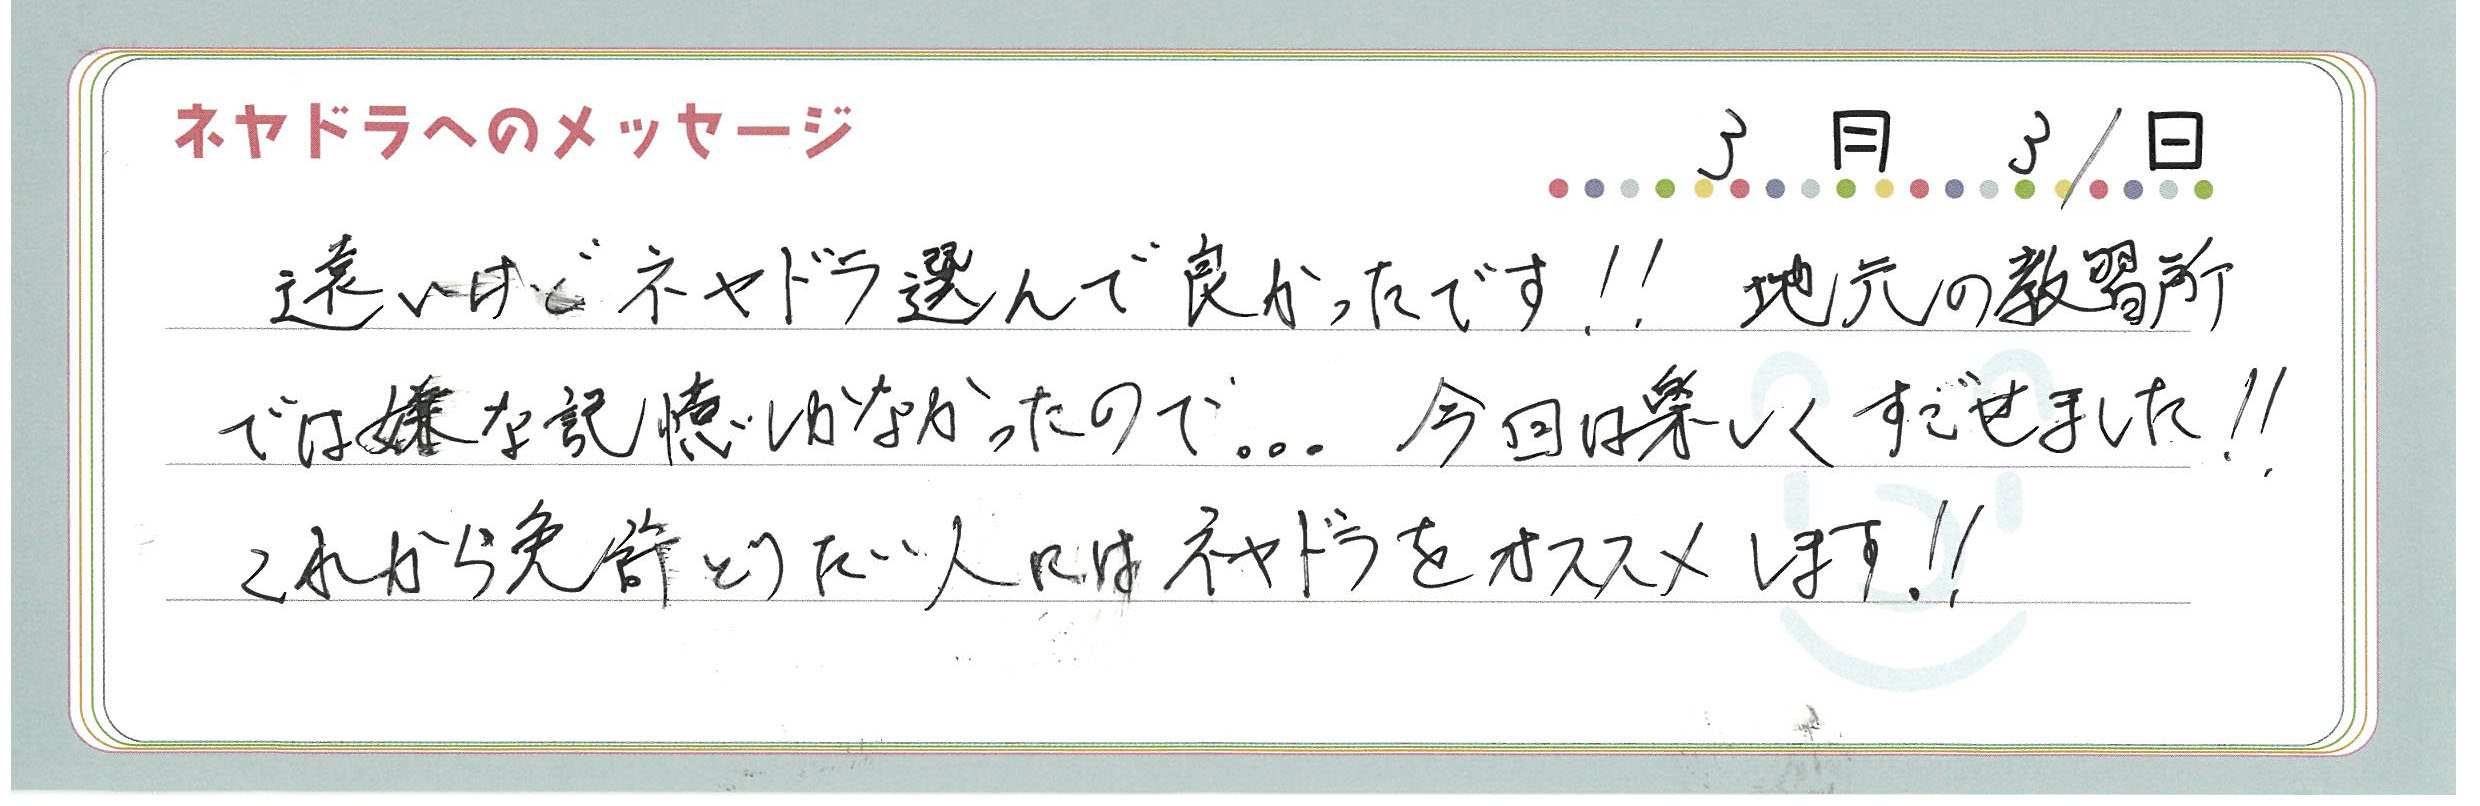 ネヤドラへのメッセージ
3月31日
遠いけどネヤドラ選んで良かったです!! 地元の教習所
では嫌な記憶しかなかったので... 今回は楽しくすごせました!!
これから免許とりたい人にはネヤドラをオススメします!!